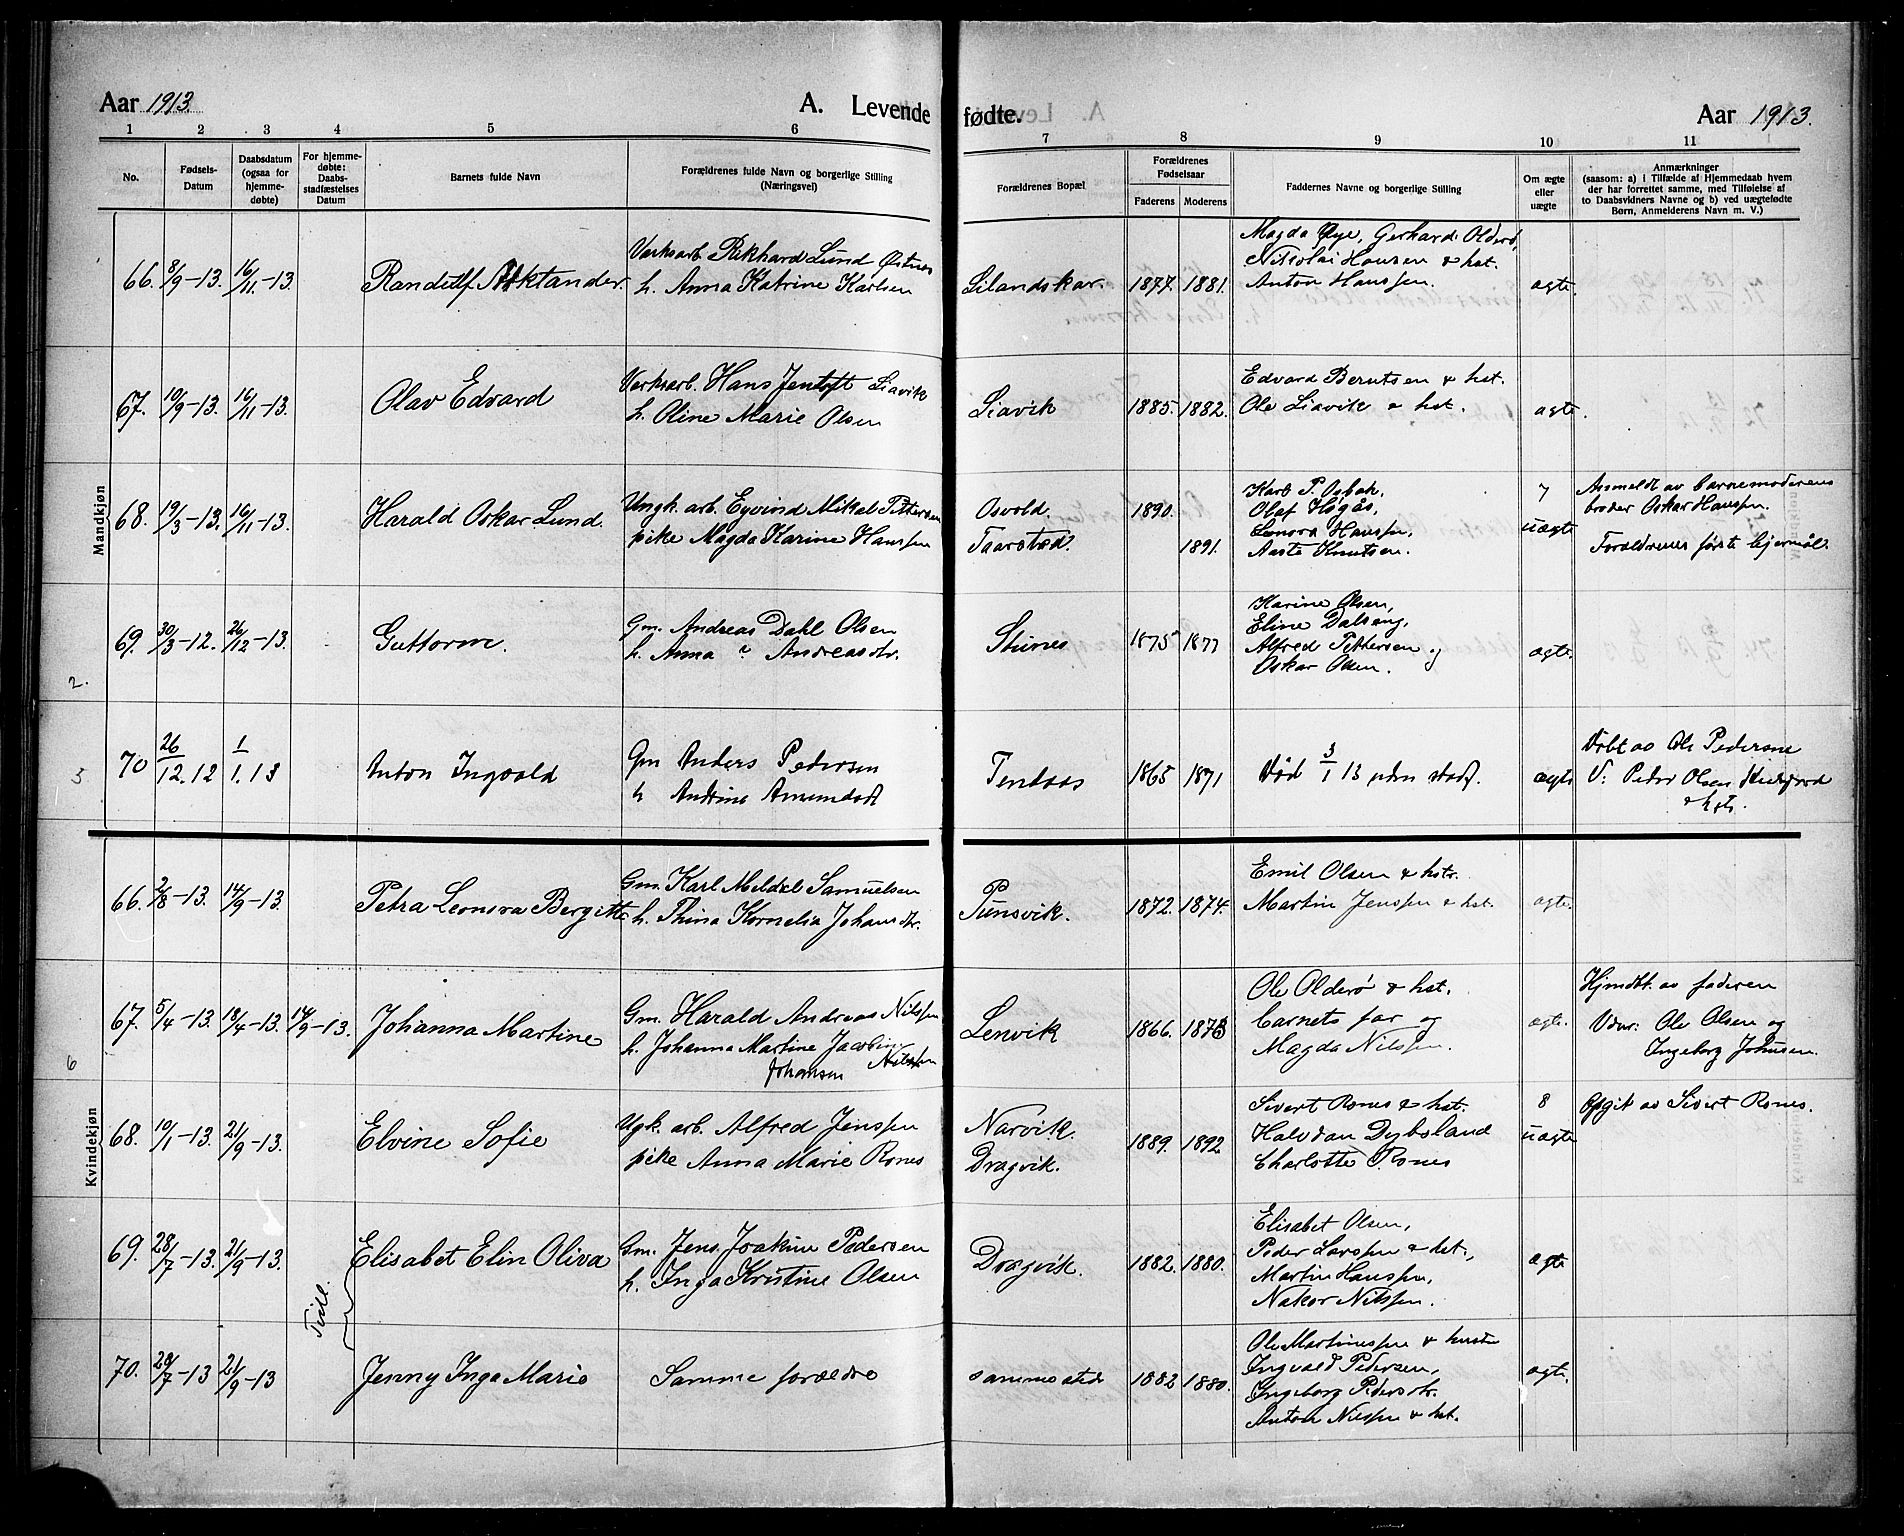 Aar 1913.
A. Levende
fødte.
Aar 1913.
1 2 3 4 5 6 7 8 9 10 11
No.
Fødsels-
Datum
Daabsdatum
(ogsaa for
hjemme-
døbte)
For hjemme-
døbte:
Daabs-
stadfæstelses
Datum
Barnets fulde Navn
Forældrenes fulde Navn og borgerlige Stilling
(Næringsvei)
Forældrenes Bopæl
Forældrenes
Fødselsaar
Faderens Moderens
Faddernes Navne og borgerlige Stilling
Om ægte
eller
uægte
Anmærkninger
(saasom: a) i Tilfælde af Hjemmedaab hvem
der har forrettet samme, med Tilføielse af
to Daabsvidners Navne og b) ved uægtefødte
Børn, Anmelderens Navn m. V.)
Mandkjøn
66. 8/9-13. 16/11-13.
Verksarb. Rikhard Lund
h. Anna Katrine Karlsen
Lilandskar. 1877. 1881.
Magda Øye, Gerhard Olderø,
Nikolai Hansen & hst.
Anton Hanssen.
ægte.
67. 10/9-13. 16/11-13. Olav Edvard
Verksarb. Hans Jentoft Liavik
h. Oline Marie Olsen
Liavik 1885. 1882.
Edvard Berntsen & hst.
Ole Liavik & hst.
ægte.
68. 19/3-13. 16/11-13. Harald Oskar Lund.
Ungk. arb. Eyvind Mikal Pettersen
pike Magda Karine Hanssen
Osvold. 1890.
Taarstad. 1891.
Karl P. Osbak,
Olaf Høgås,
Leonora Hanssen,
Aasta Knutsen.
7
uægte
Anmeldt av barnemoderens
broder Oskar Hanssen.
Forældrenes første lejermål.
2.
69. 30/3-12. 26/12-13. Guttorm.
Gm. Andreas Dahl Olsen
h. Anna Andreasdtr.
Stunes 1875 1877
Karine Olsen,
Eline Dalseng,
Alfred Pettersen og
Oskar Olsen.
ægte.
5
70 26/12.12 1/1.13 Anton Ingvald
Gm Anders Pedersen
h Andrine Amundsd
Tendaas 1865 1871
Død 3/1 13 uden stadf.
ægte
Døbt av Ole Pedersen
V: Peder Olsen
& hst.
Kvindekjøn
66. 2/8-13. 14/9-13. Petra Leonora Bergitte
Gm. Karl Meldal Samuelsen
h. Thina Kornelia Johansdtr.
Pünsvik. 1872. 1874.
Emil Olsen & hstr.
Martin Jenssen & hst.
ægte.
67. 5/4-13. 18/4-13. 14/9-13. Johanna Martine
Gm. Harald Andreas Nilssen
h. Johanna Martine Jacobine
Johansen Nilssen
Lenvik 1866. 1873
Ole Olderø & hst.
barnets far og
Magda Nilssen.
ægte.
Hjmdbt. av faderen
Vdnr: Ole Olsen og
Ingeborg Johnsen.
6
68. 10/1-13. 21/9-13. Elvine Sofie
Ugk. arb. Alfred Jenssen
pike Anna Marie Rones
Narvik.
Dragvik. 1889. 1892
Sivert Rones & hst.
Halvdan Dybsland
Charlotte Rones
8
uægte
Opgit av Sivert Rones.
69. 28/7-13. 21/9-13. Elisabet Elin Oliva
Gm. Jens Joakim Pedersen
h. Inga Kristine Olsen
Dragvik. 1882. 1880.
Elisabet Olsen,
Peder Larssen & hst.,
Martin Hanssen,
Nakor Nilssen.
ægte
Tvill.
70. 28/7-13 21/9-13 Jenny Inga Marie
Samme forældre
sammesteds 1882 1880.
Ole Martinussen & hustru
Ingvald Pedersen,
Ingeborg Pedersdtr.
Anton Nilssen & hst.
ægte.